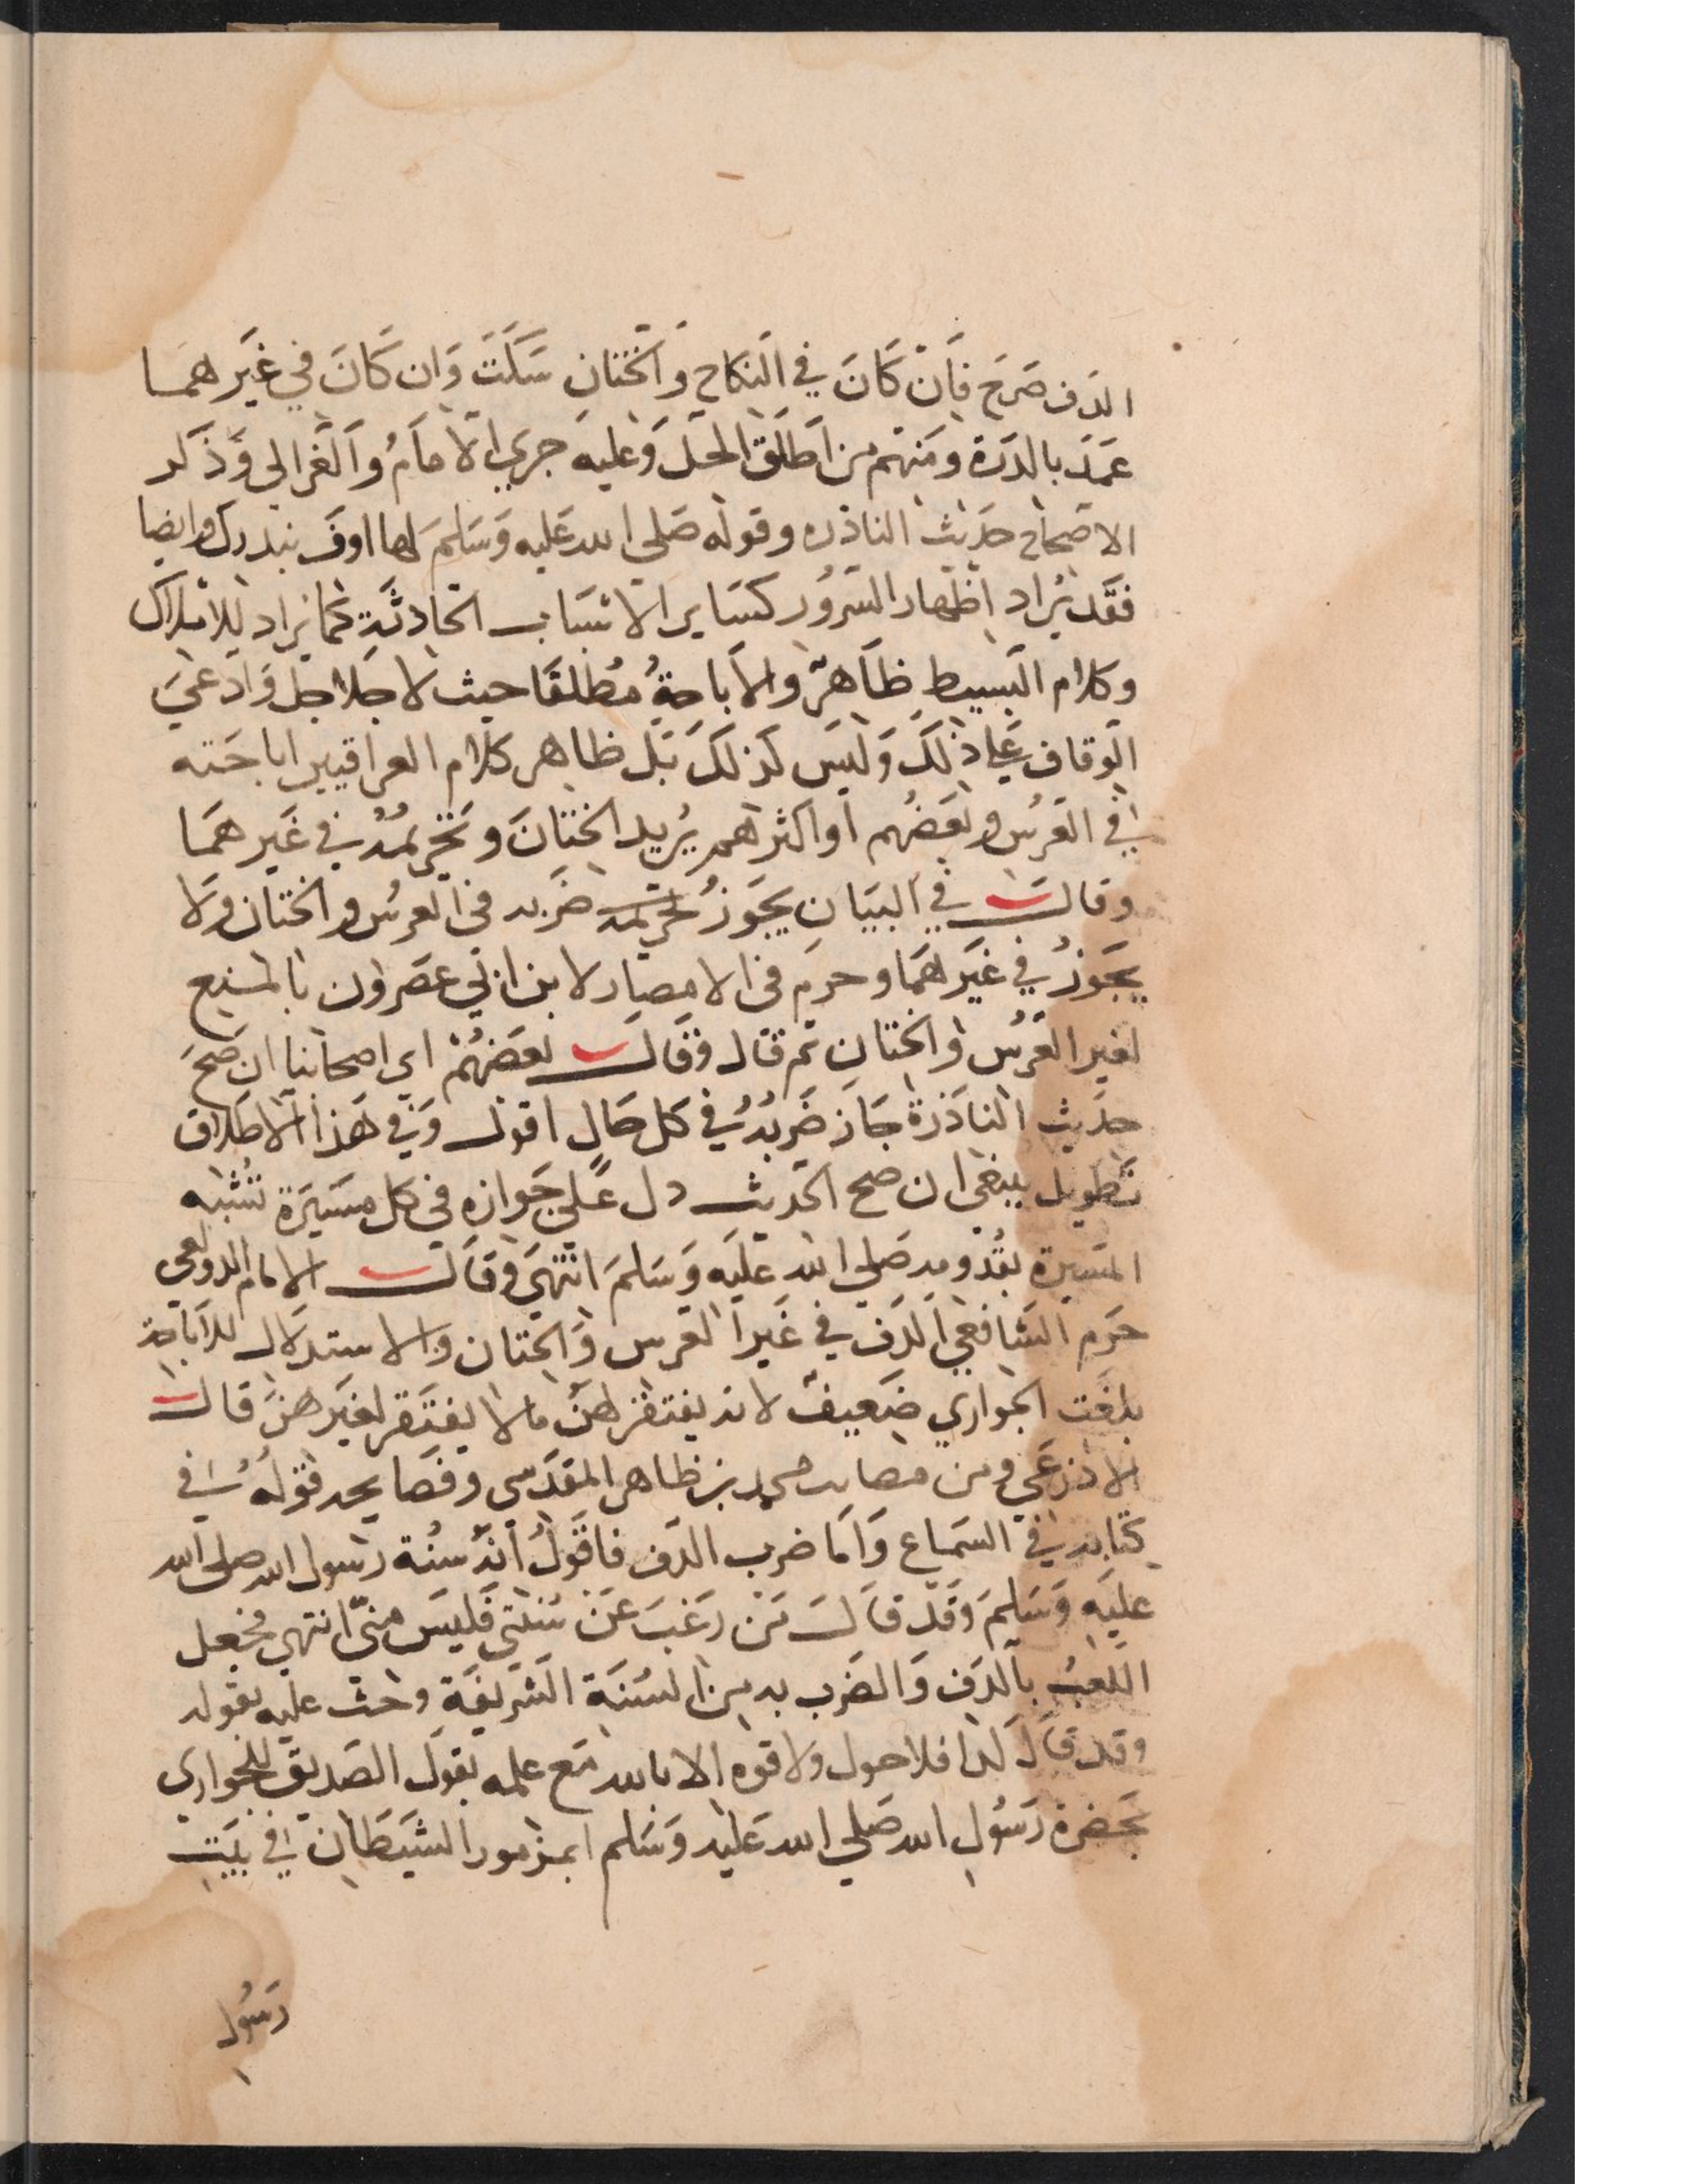 الدف صرح فان كان في النكاح والختان سكت وان كان في غيرهما
عمد بالدرة ومنهم من اطلق الحل وعليه جري الامام والغزالي وذكر
الاصحاب حديث الناذره وقوله صلي الله عليه وسلم لها اوف بنذرك وايضا
فقد يراد اظهار السرور كساير الاسباب الحادثة كما يراد للاملاك
وكلام البسيط ظاهر والاباحة مطلقا حيث لا جلاجل وادعي
الوقاف علي ذلك وليس كذلك بل ظاهر كلام العراقيين اباحته
في العرس وبعضهم او اكثرهم يريد الختان وتحريمه في غيرهما
وقال في البيان يجوز تحريمه ضربه في العرس والختان ولا
يجوز في غيرهما وحرم في الامصار لابن ابي عصرون بالمنع
لغير العرس والختان ثم قال وقال بعضهم اي اصحابنا ان صح
حديث الناذرة جاز ضربه في كل حال اقول وفي هذا الاطلاق
تطويل ينبغي ان صح الحديث دل علي جوازه في كل مسيرة تشبه
المسيرة بقدومه صلي الله عليه وسلم انتهي وقال الامام الدولعي
حرم الشافعي الدف في غير العرس والختان والاستدلال للاباحة
بلعب الجواري ضعيف لانه يفتقر لهن ما لا يفتقر لغيرهن قال
الاذرعي ومن مصايب محمد بن طاهر المقدسي وفضايحه قوله في
كتابه في السماع واما ضرب الدف فاقول انه سنة رسول الله صلي الله
عليه وسلم وقد قال من رغب عن سنتي فليس مني انتهي فجعل
اللعب بالدف والضرب به من السنة الشريفة وحث عليه بقوله
وقد قال لذا فلا حول ولا قوه الا بالله مع علمه بقول الصديق للجواري
بحضرة رسول الله صلي الله عليه وسلم ابمزمور الشيطان في بيت
رسول